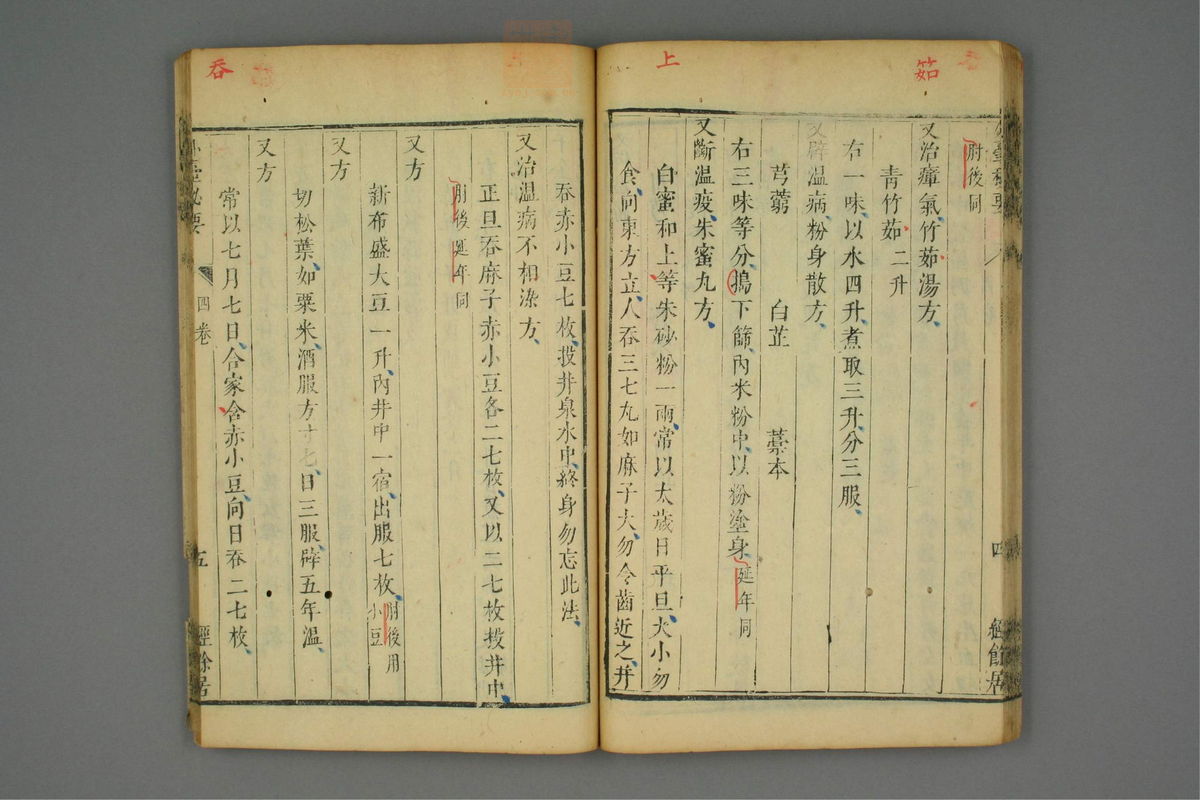 茹
上
外臺秘要
四
經餘居
肘後同
又治瘴氣竹茹湯方
青竹茹二升
右一味以水四升煮取三升分三服
又辟温病粉身散方
芎藭 白芷 藁本
右三味等分搗下篩內米粉中以粉塗身延年同
又斷温疫朱蜜丸方
白蜜和上等朱砂粉一兩常以太歲日平旦大小勿
食向東方立人吞三七丸如麻子大勿令齒近之并
吞
吞赤小豆七枚投井泉水中終身勿忘此法
又治温病不相染方
正旦吞麻子赤小豆各二七枚又以二七枚投井中
肘後延年同
又方
新布盛大豆一升內井中一宿出服七枚肘後用小豆
又方
切松葉如粟米酒服方寸匕日三服辟五年温
又方
常以七月七日合家含赤小豆向日吞二七枚
外臺秘要
四卷
五
經餘居